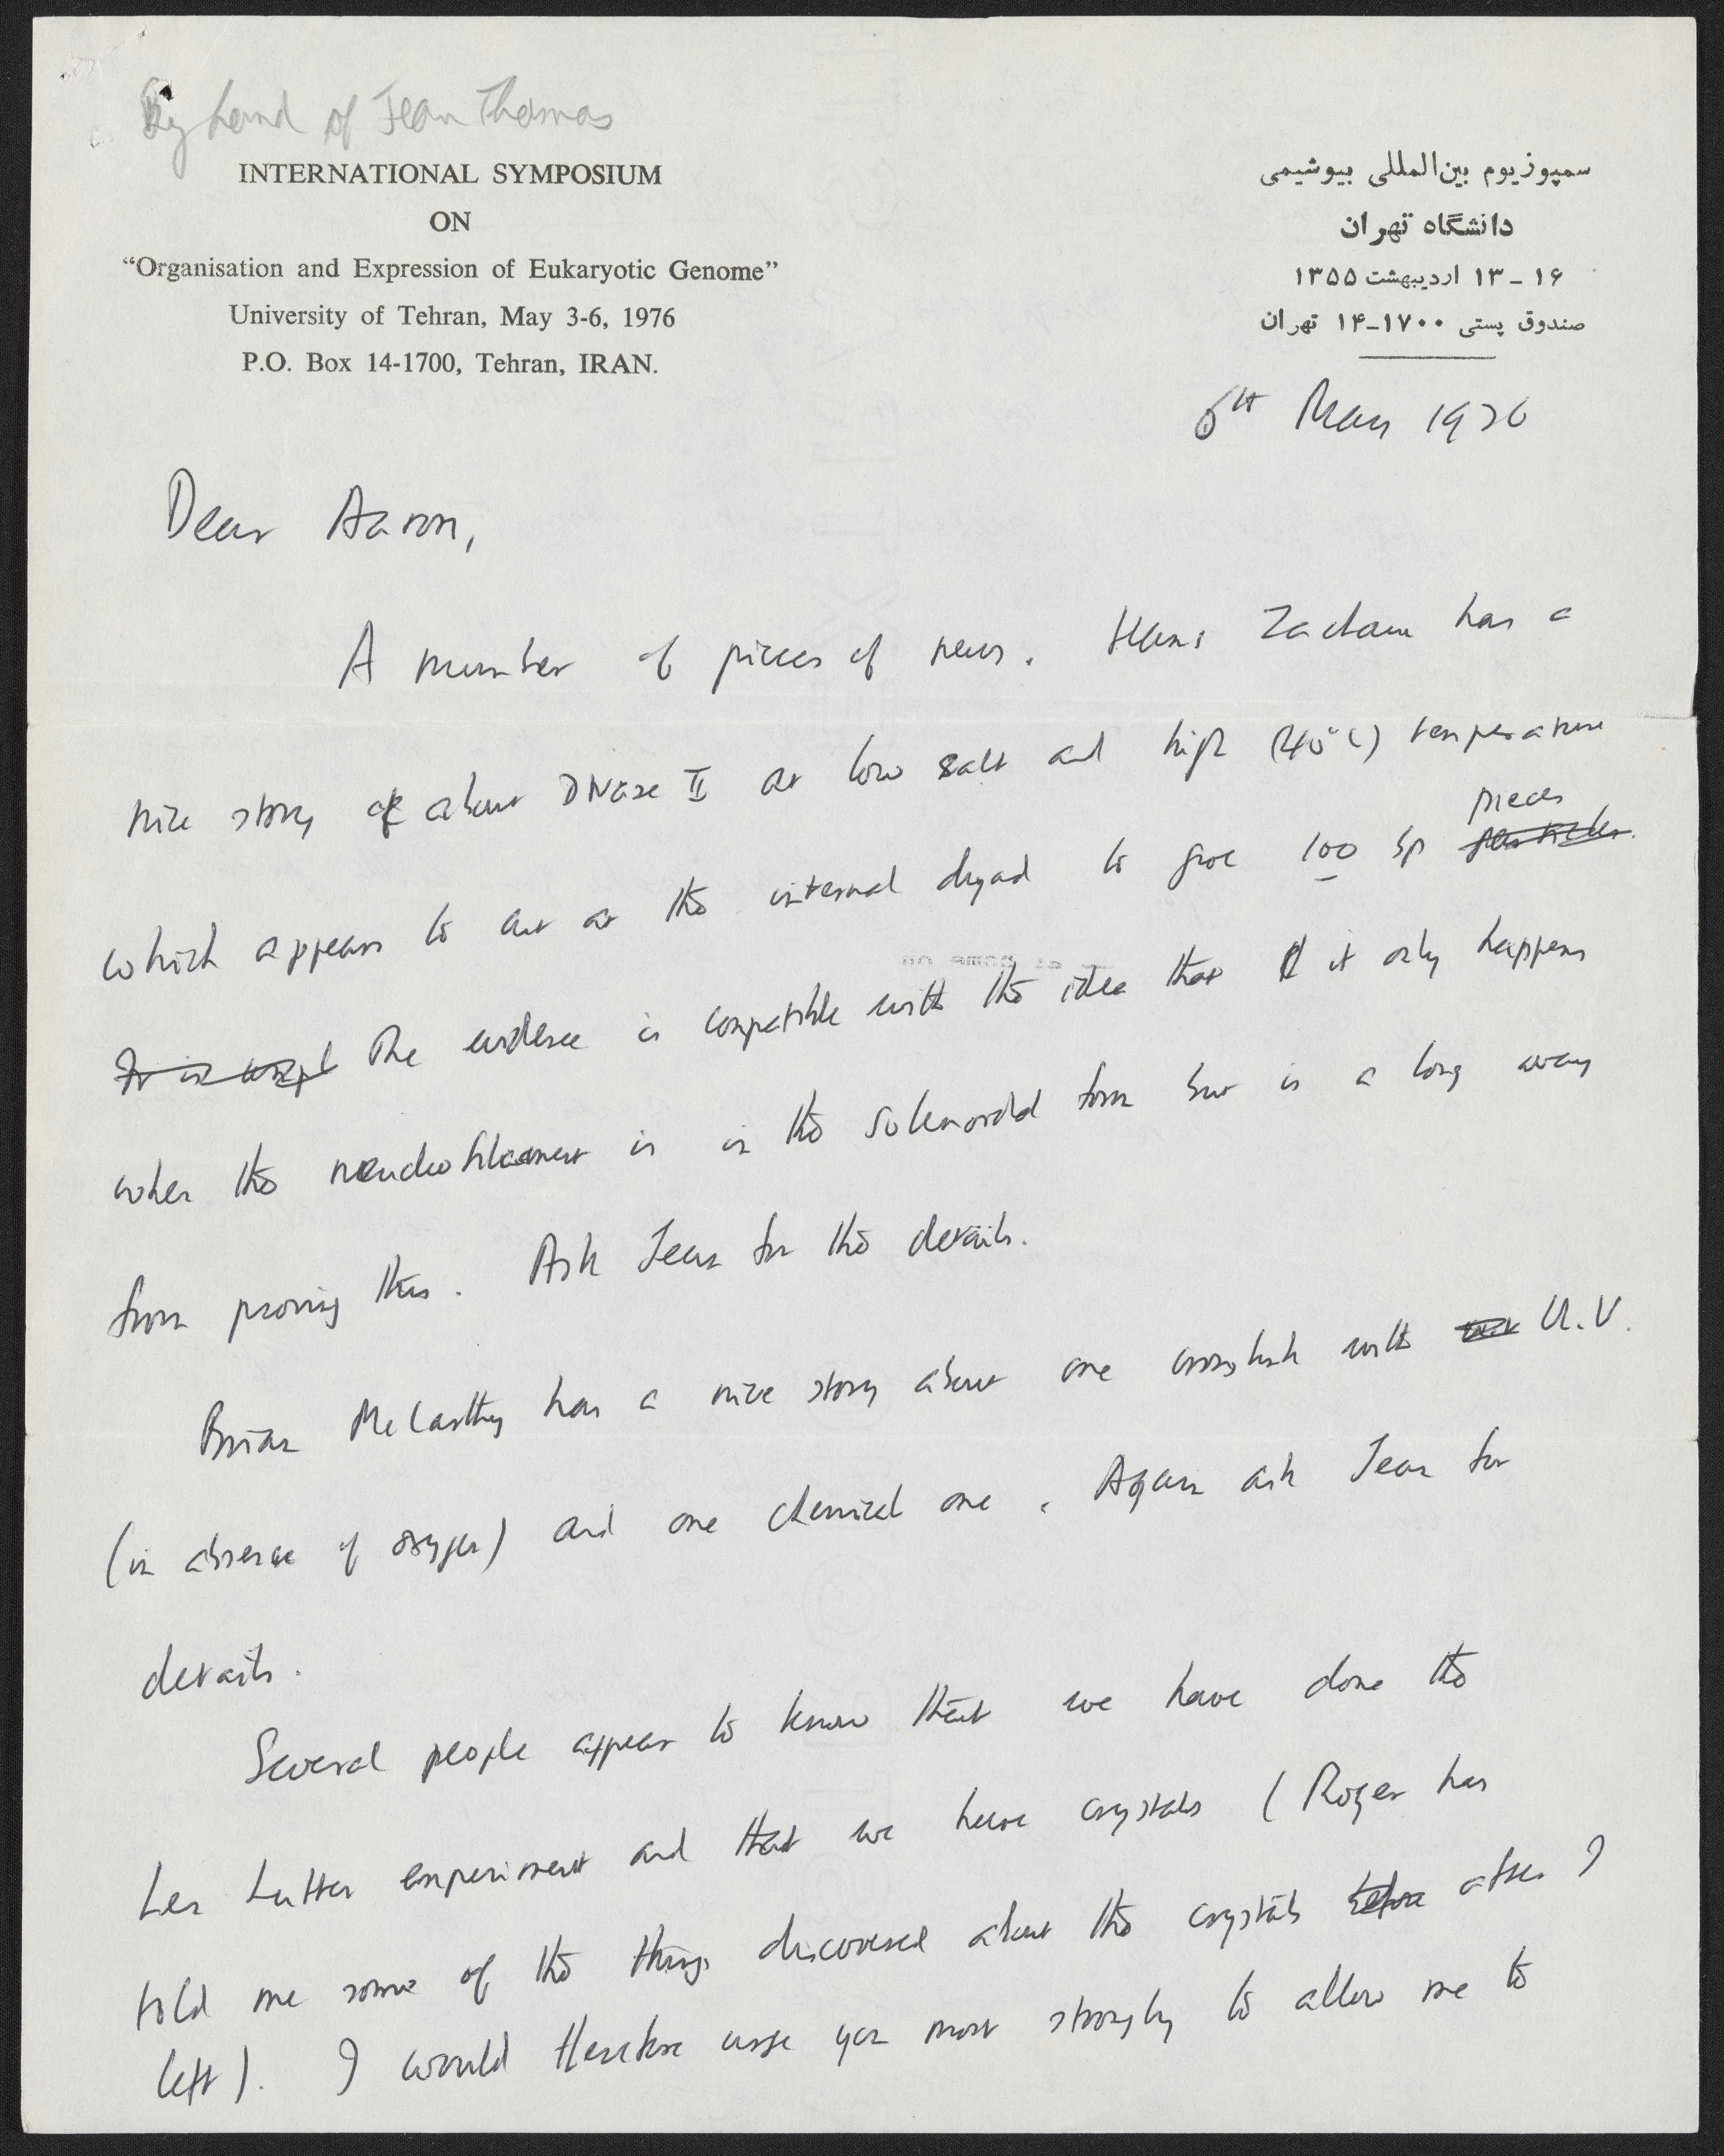 By hand of Jean Thomas
INTERNATIONAL SYMPOSIUM
ON
“Organisation and Expression of Eukaryotic Genome”
University of Tehran, May 3-6, 1976
P.O. Box 14-1700, Tehran, IRAN.
سمپوزیوم بین‌المللی بیوشیمی
دانشگاه تهران
۱۶ - ۱۳ اردیبهشت ۱۳۵۵
صندوق پستی ۱۷۰۰-۱۴ تهران
6th May 1976
Dear Aaron,
A number of pieces of news. Hans Zachau has a
nice story of about DNase II at low salt and high (40°C) temperature
which appears to cut at the internal dyad to give 100 bp pieces particles.
The evidence is compatible with the idea that it only happens
when the nucleofilament is in the solenoidal form but is a long way
from proving this. Ask Jean for the details.
Brian McCarthy has a nice story about one crosslink with U.V.
(in absence of oxygen) and one chemical one. Again ask Jean for
details.
Several people appear to know that we have done the
Len Lutter experiment and that we have crystals (Roger has
told me some of the things discovered about the crystals before after I
left). I would therefore urge you most strongly to allow me to